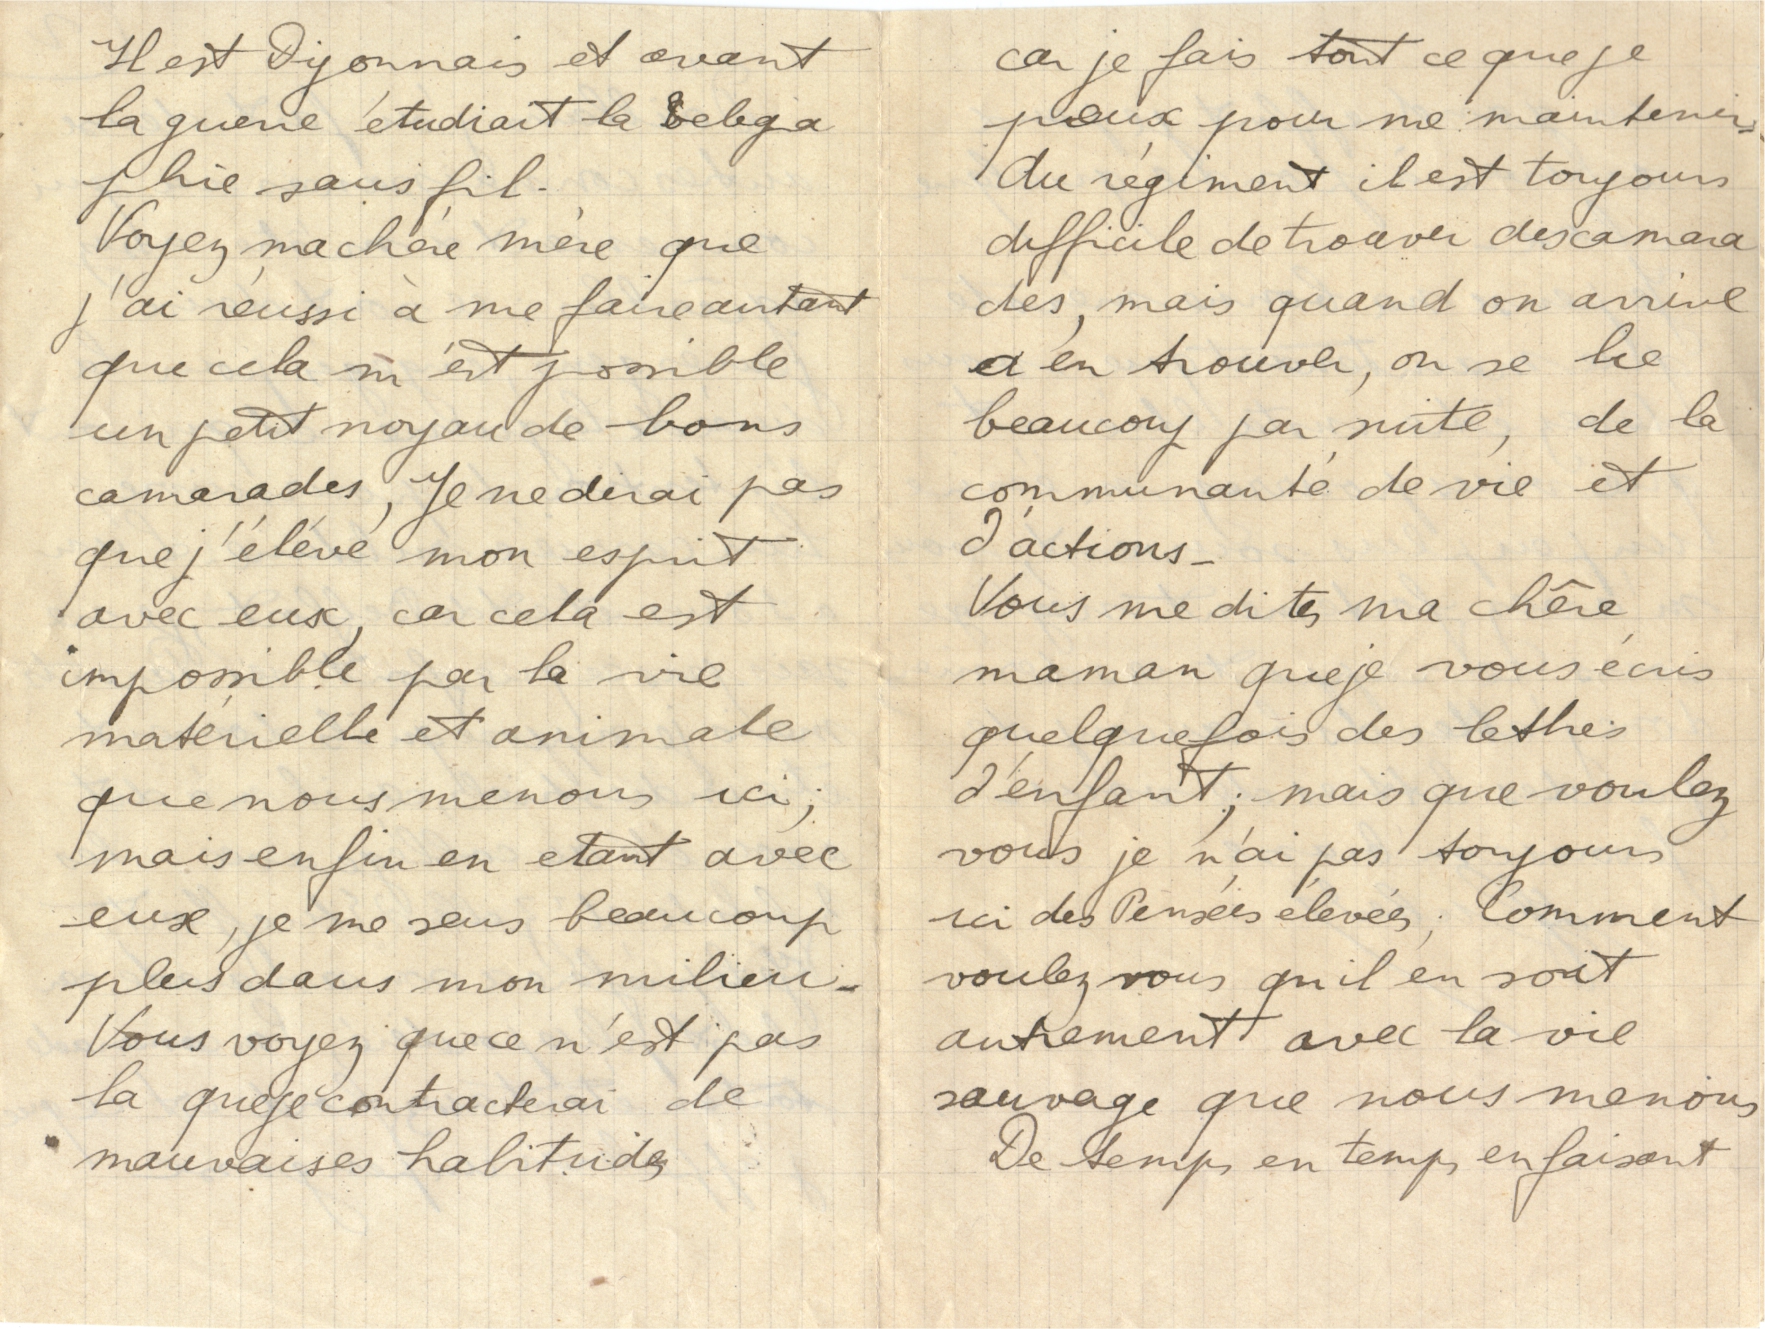 Il est Dijonnais et avant
la guerre étudiait la telega
phie sans fil.
Voyez ma chère mère que
j'ai réussi à me faire autant
que cela m'est possible
un petit noyau de bons
camarades, Je ne dirai pas
que j'élève mon esprit
avec eux, car cela est
impossible par la vie
matérielle et animale
que nous menons ici ;
mais enfin en etant avec
eux, je me sens beaucoup
plus dans mon milieu -
Vous voyez que ce n'est pas
la que je contracterai de
mauvaises habitudes
car je fais tout ce que je
peux pour me maintenir.
Au régiment il est toujours
difficile de trouver des camara
des, mais quand on arrive
a en trouver, on se lie
beaucoup par suite, de la
communauté de vie et
d'actions -
Vous me dites ma chère
maman que je vous écris
quelquefois des lettres
d'enfant ; mais que voulez
vous je n'ai pas toujours
ici des Pensées élevées. Comment
voulez vous qu'il en soit
autrement avec la vie
sauvage que nous menons
De temps en temps en faisant